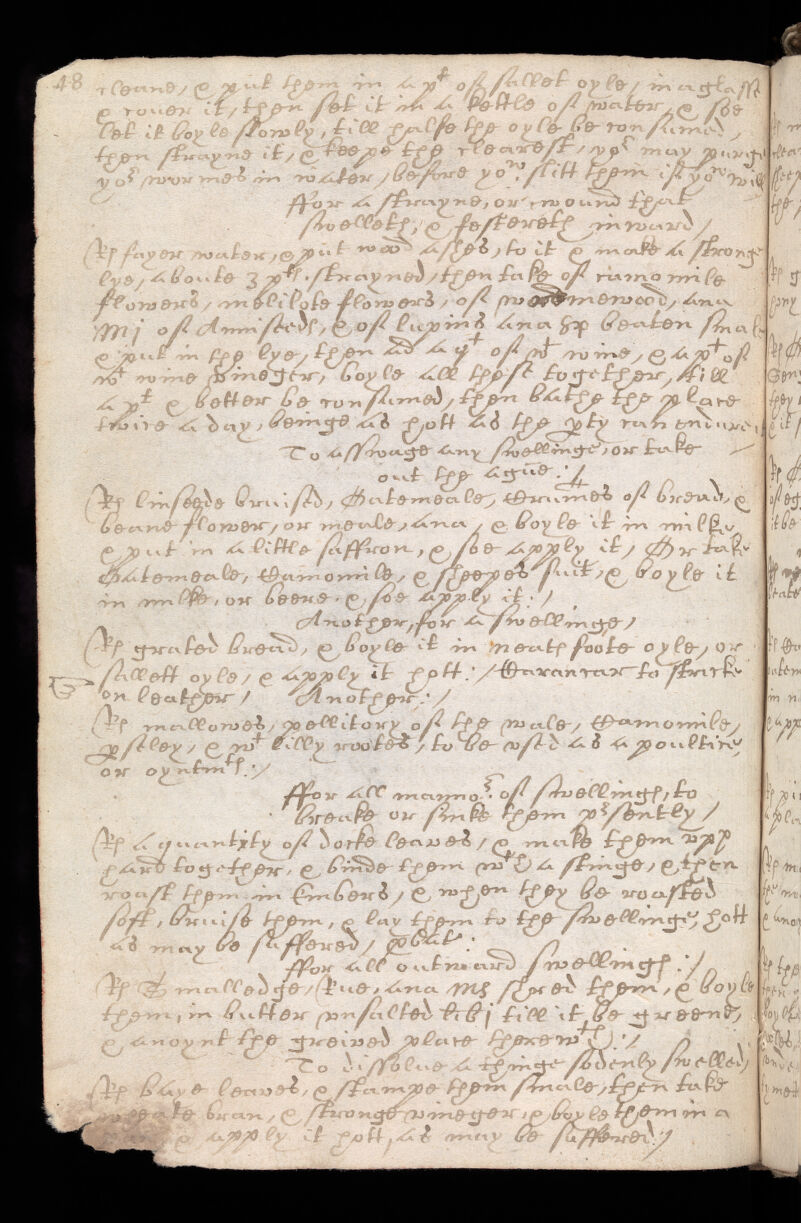 48 cleane, & put them in a pt of sallet oyle, in a glasse
& couer it, then set it in a kettle of water, & soe
let it boyle slowly, till halfe the oyle be consumed,
then strayne it, & keepe the clearest, yor may purge
yor wormes in water, before yow slitt them if yow will
ffor a strayne, or wound that
swelleth, & festereth inward /
Rx fayer water, & put wood ashes, to it & make a stronge
lye, aboute 3 pts. strayned, then take of camomile
flowers, melilote flowers, of wormewood, ana
Mj of Anniseeds, & of lupins ana beaten smale
& put in the lye, then ad a qt of wt wine, & a pt of
wt wine vineger, boyle all these together, till
a pt & better be consumed, then bathe the place
twice a day, beinge as hott as the pty can endure it
To asswage any swellinge, or take
out the ague :/
Rx linseede bruised, Oatemeale, Crum̄es of bread, &
beane flower, or meale, ana, & boyle it in milke,
& put in a little saffron, & soe apply it / Or take
Oatemeale, Camomile, & sheepes suit, & boyle it
in milke, or beere, & soe apply it :/
Another, for a swellinge /
Rx grated bread, & boyle it in neats foote oyle, or
sallett oyle, & apply it hott :/ Carancar to stricke
on leather / Another :/
Rx mallowes, pellitory of the wale, Camomile,
pseley, & wt lilly rootes, to be vsed as a poultice,
or oyntmts :/
ffor all mannor of swellings, to
breake or sinke them psently /
Rx a quantyty of docke leaues, & make them vpp
hard together, & binde them wth a stinge, & then
roast them in Embers, & when they be roasted
soft, bruise them, & lay them to the swellinge, hott
as may be suffered / pbat :
ffor all outward swellings :/
Rx Smalledge, Rue, ana Mj shred them, & boyle
them, in butter vnsalted lib j till it be greene,
& anoynt the greived place therewth :/
To dissolue a thinge sodenly swelled /
Rx baye leaues, & stampe them smale, then take
wheate bran, & stronge vineger, & boyle them in a
& apply it hott, as may be suffered :/